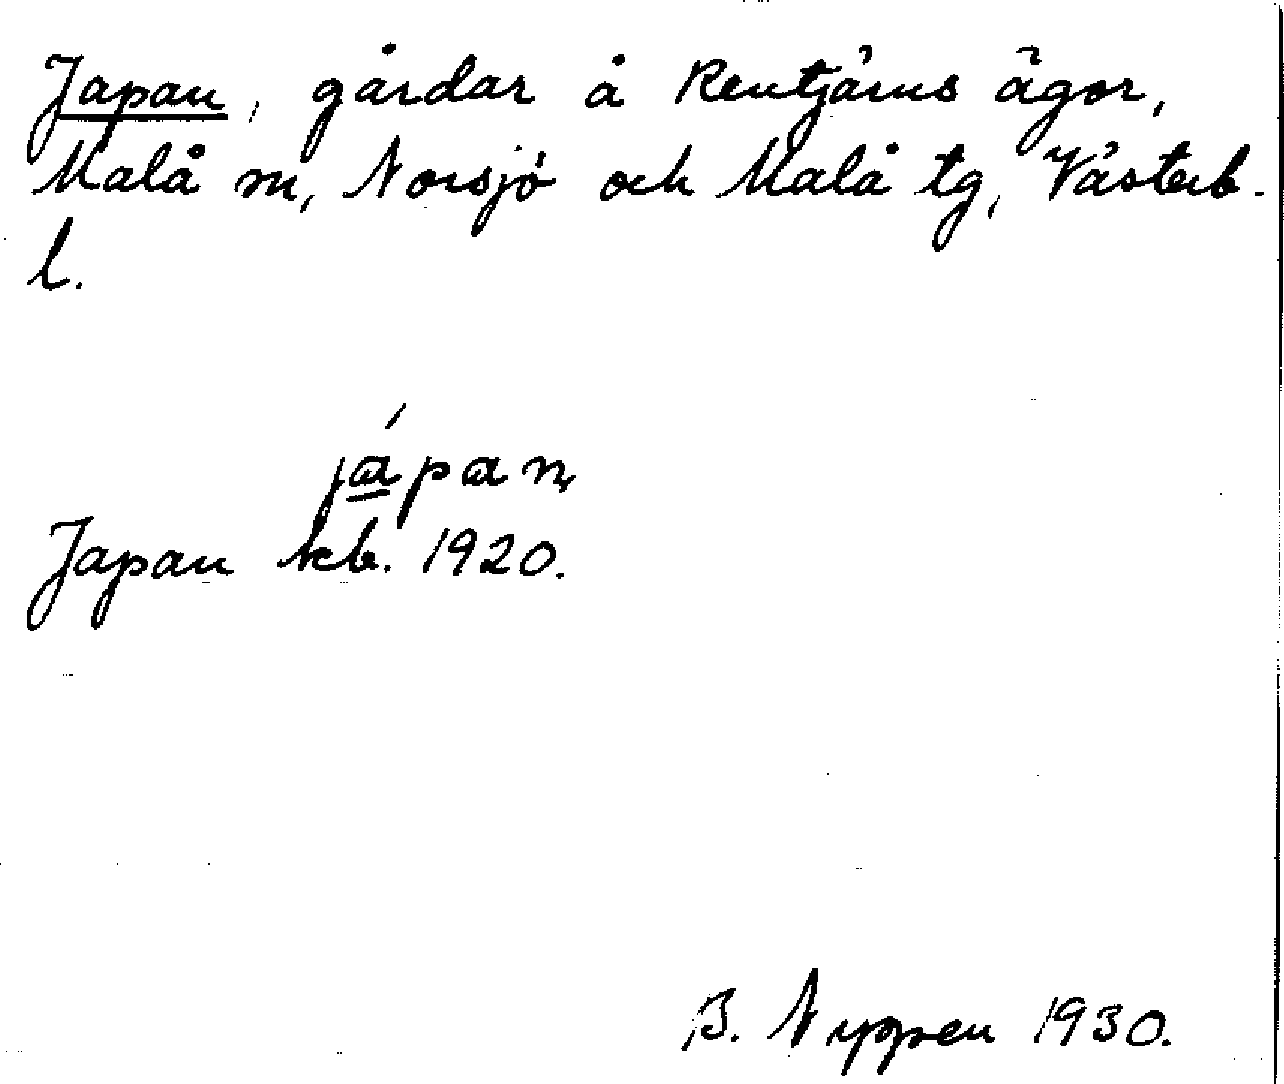 Japan, gårdar å Rentjärns ägor,
Malå sn, Norsjö och Malå tg, Västerb.
l.
já̱pan,
Japan kb. 1920.
B. Nyppen 1930.